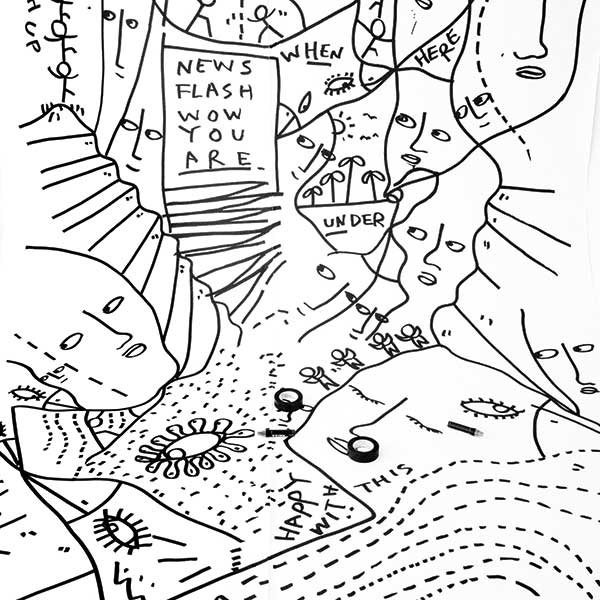 UP
NEWS
FLASH
WOW
YOU
ARE
WHEN
HERE
UNDER
HAPPY
WITH
THIS